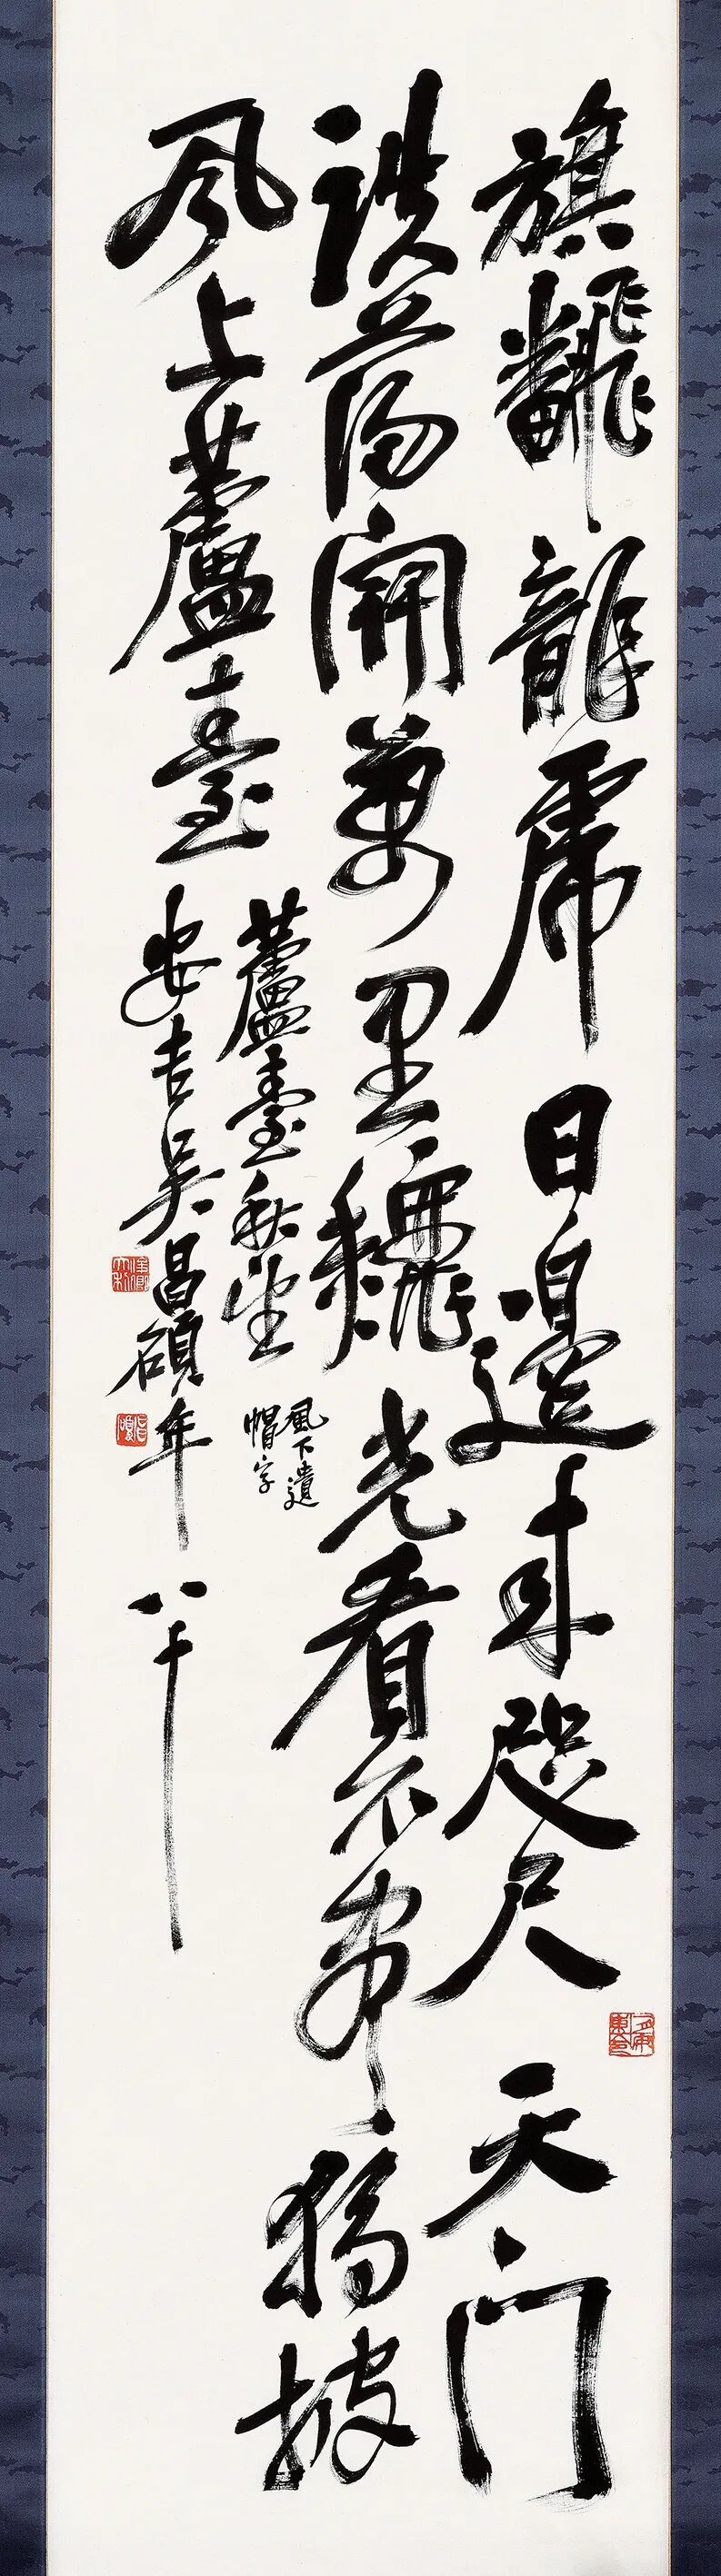 旗飜龍虎日邊來咫尺天門
詄蕩開萬里光看不獨披
風上蘆臺
蘆臺秋望
風下遺
帽字
安吉吳昌碩年八十